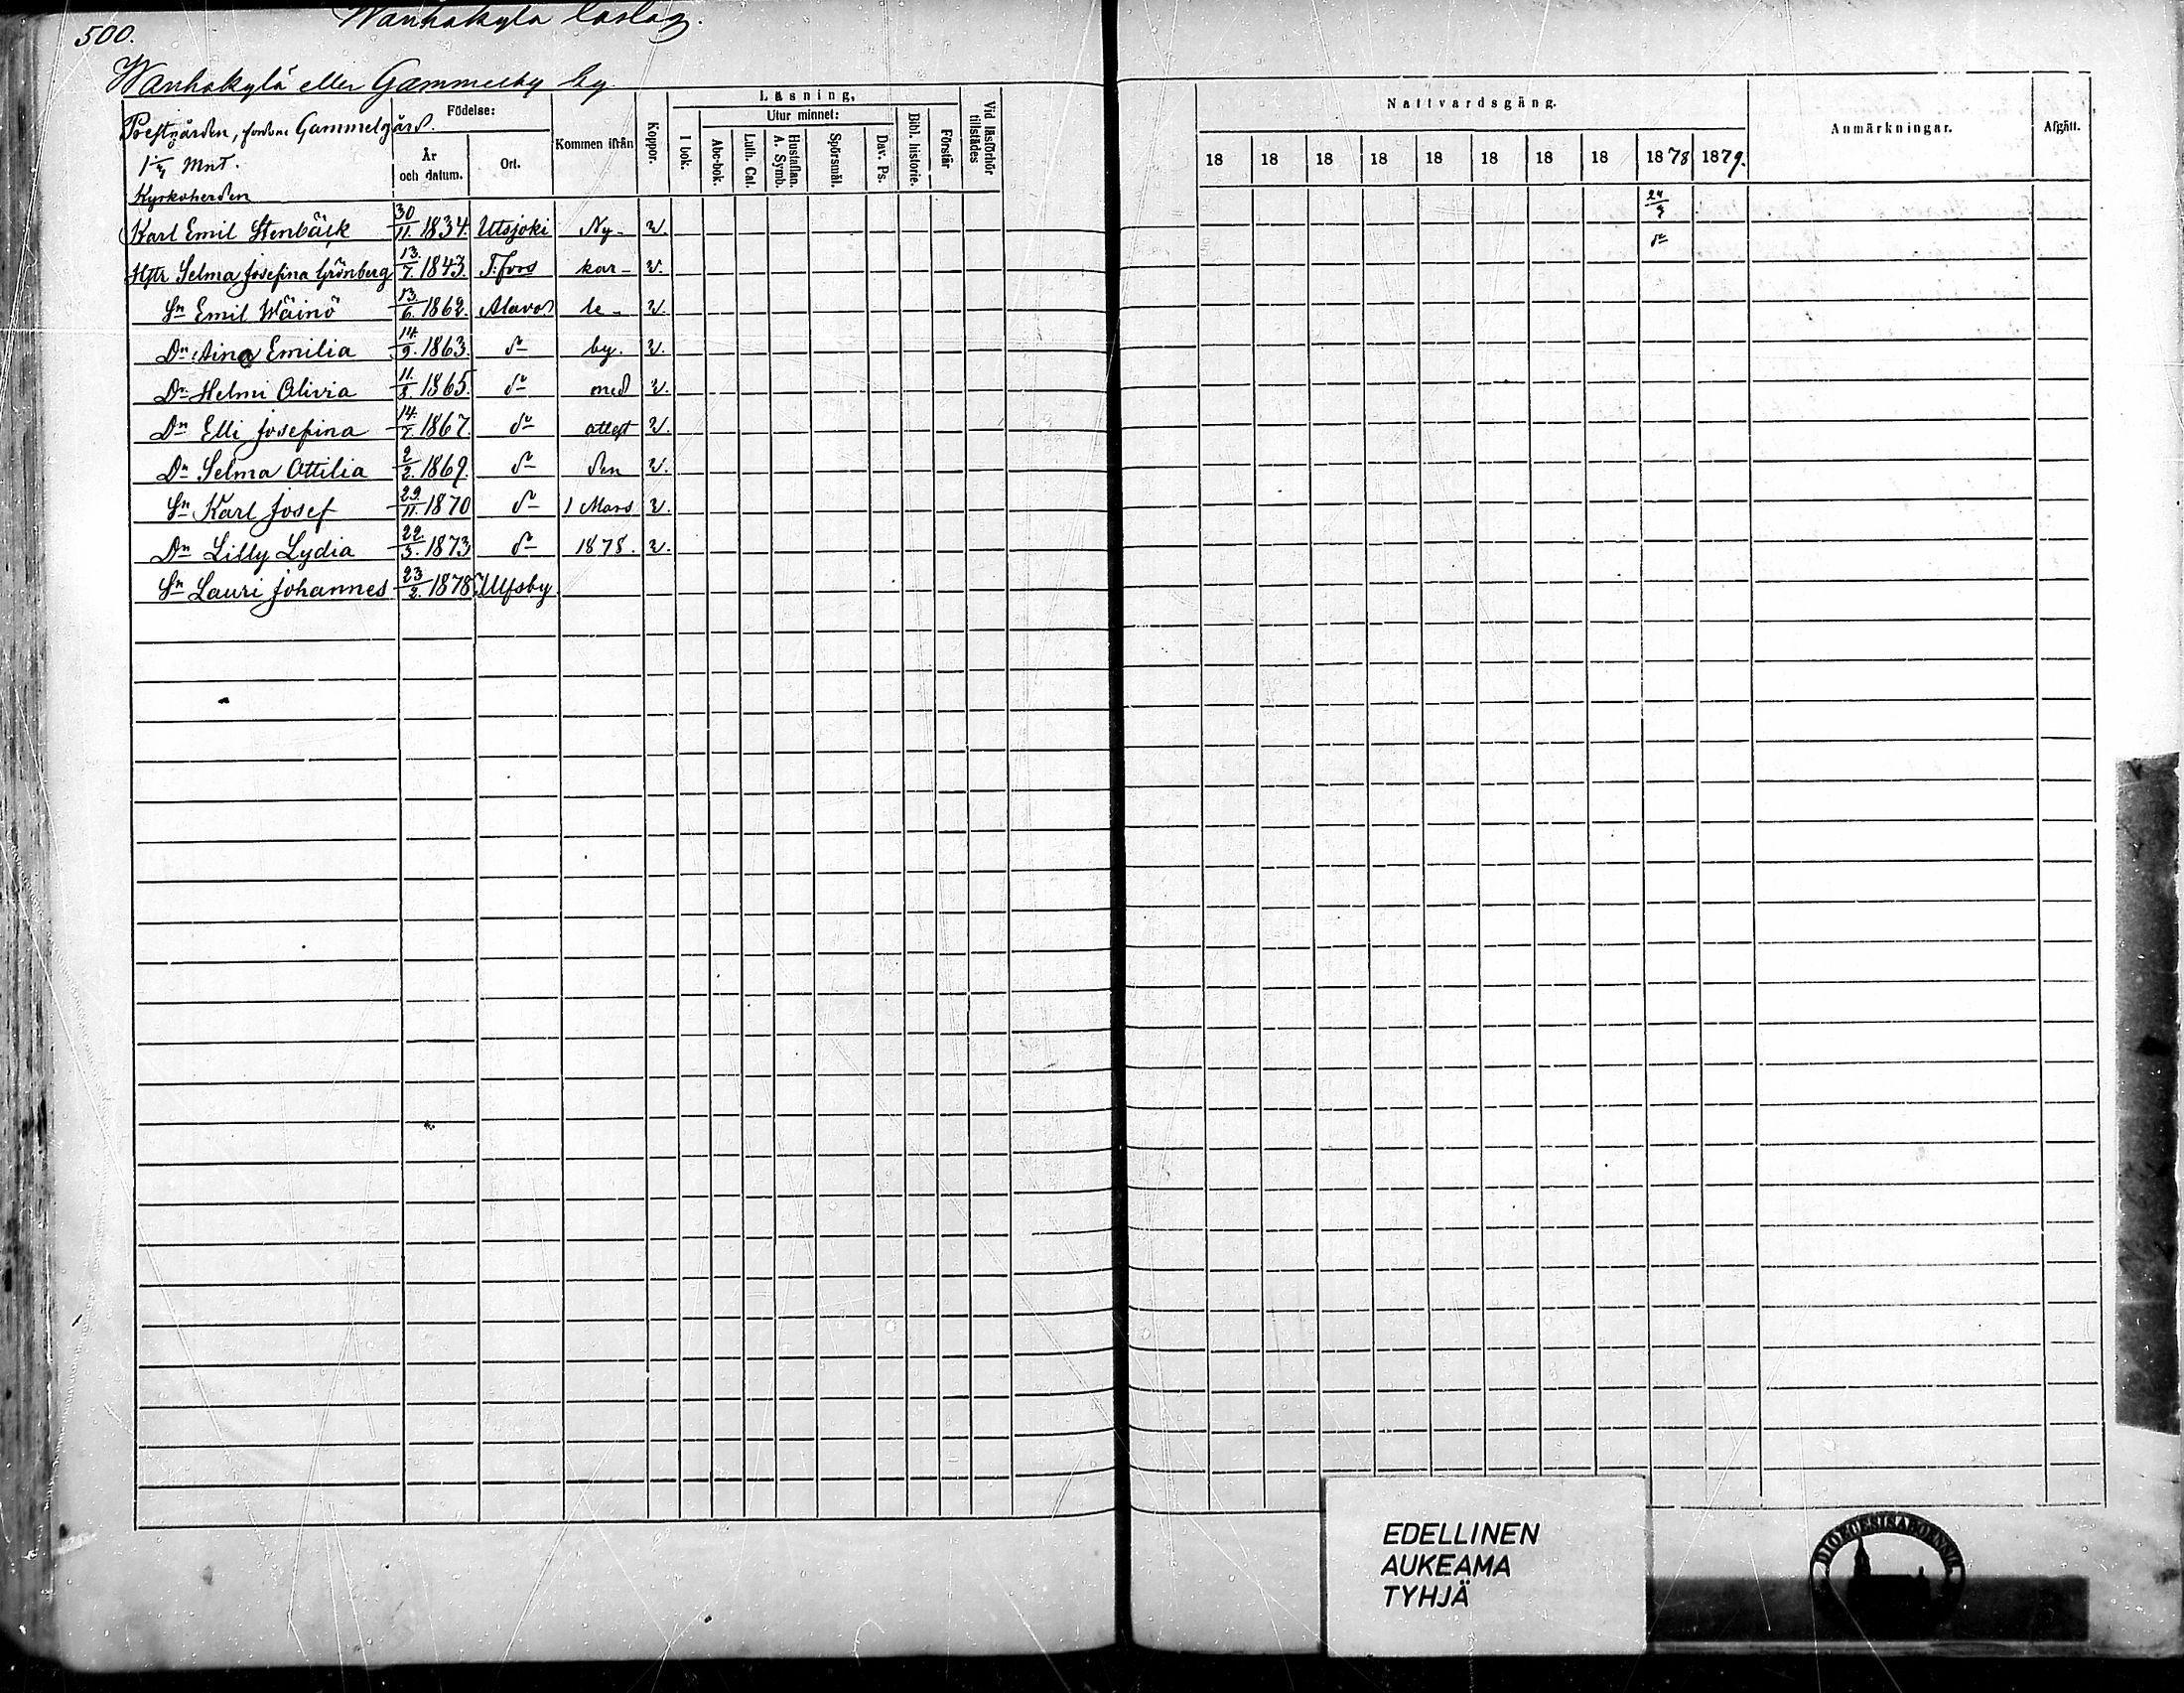 500. Wanhakylä läslag.
Wanhakylä eller Gammelby by.
Prestgården, fordom Gammelgård.
Mnt.
Kyrkoherden
Födelse:
År och datum.
Ort.
Kommen ifrån
Koppor.
Läsning,
I bok.
Utur minnet:
Abc-bok.
Luth. Cat.
Hustaflan. A. Symb.
Spörsmål.
Dav. Ps.
Bibl. historie.
Förstår
Vid läsförhör tillstädes
Nattvardsgång.
18 18 18 18 18 18 18 18 1878 1879.
Anmärkningar.
Afgått.
Karl Emil Stenbäck 30/11. 1834. Utsjoki Ny- v. 24/3
Hstr Selma Josefina Grönberg 13/7. 1843. T:fors kar- v. do
Sn Emil Wäinö 13/6. 1862. Alavo le- v.
Dn Aina Emilia 14/9. 1863. do by. v.
Dn Helmi Olivia 11/8. 1865. do med v.
Dn Elli Josefina 14/7. 1867. do attest v.
Dn Selma Ottilia 2/2. 1869. do den v.
Sn Karl Josef 29/11. 1870 do 1 Mars v.
Dn Lilly Lydia 22/3. 1873 do 1878. v.
Sn Lauri Johannes 23/2. 1878. Ulfsby
EDELLINEN
AUKEAMA
TYHJÄ
DIOECESIS ABOENSIS